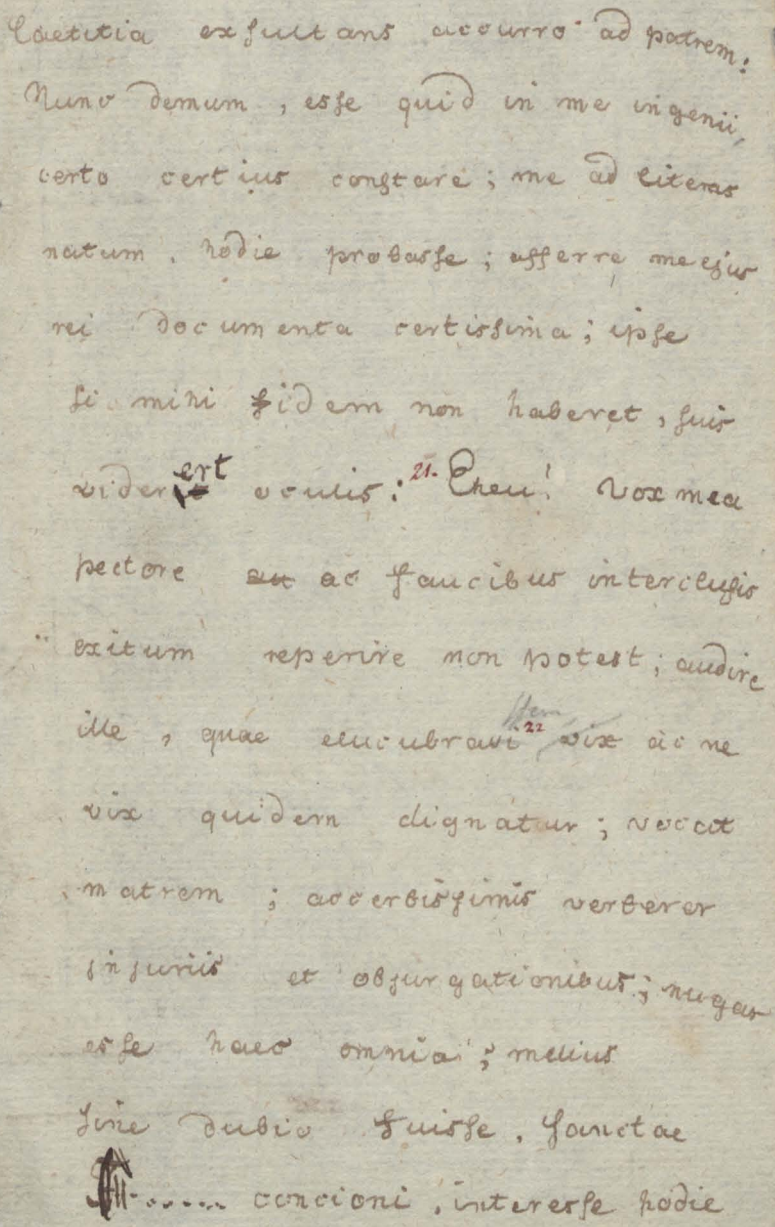 Laetitia exsultans accurro ad patrem:
Nunc demum, esse quid in me ingenii,
certo certius constare; me ad literas
natum, hodie probasse; afferre me ejus
rei documenta certissima; ipse
si mihi fidem non haberet, suis
videret oculis: 21. Eheu! Vox mea
pectore au ac faucibus interclusis
exitum reperire non potest; audire
ille, quae elucubravi 22 vix ac ne
vix quidem dignatur; vocat
matrem; accerbissimis verberer
injuriis et objurgationibus; nugas
esse haec omnia; melius
sine dubio fuisse, sanctae
...... concioni, interesse hodie